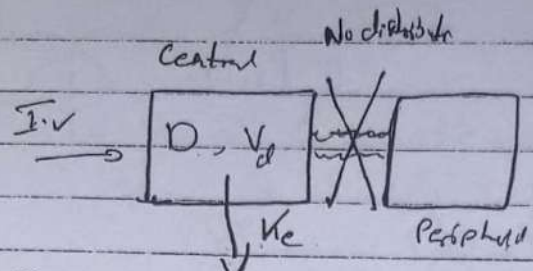 No distributn
Central
I.V
D, Vd
Ke
Peripheral